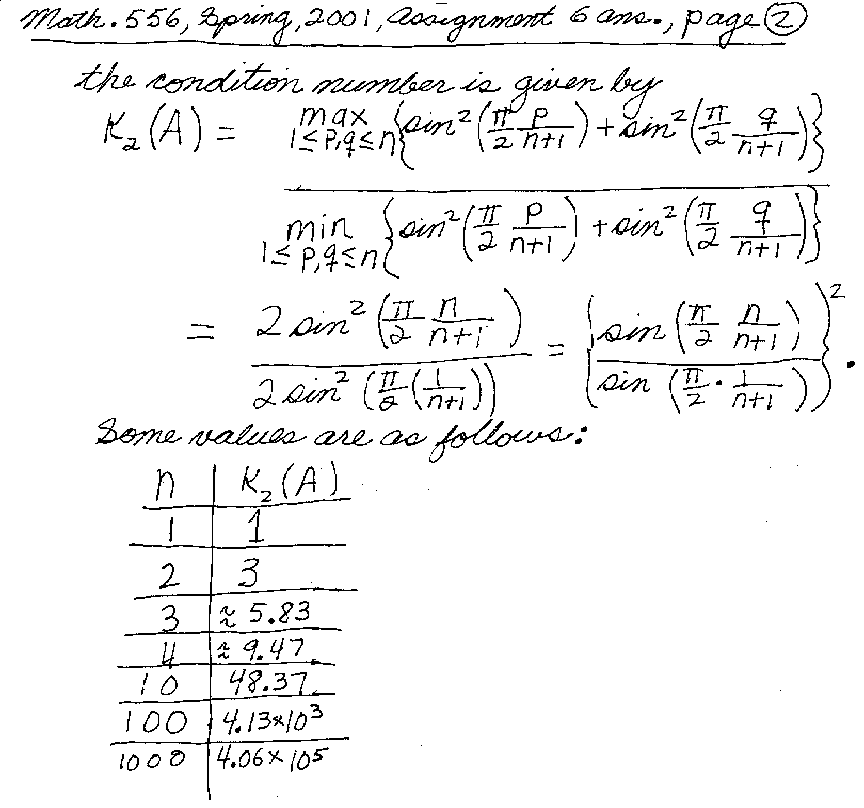 Math. 556, Spring, 2001, Assignment 6 ans., page ②
the condition number is given by
K₂(A) = max 1≤p,q≤n {sin²(π/2 p/(n+1)) + sin²(π/2 q/(n+1))}
/ min 1≤p,q≤n {sin²(π/2 p/(n+1)) + sin²(π/2 q/(n+1))}
= 2 sin²(π/2 n/(n+1)) / 2 sin²(π/2 (1/(n+1))) = {sin(π/2 n/(n+1)) / sin(π/2 · 1/(n+1))}².
Some values are as follows:
n | K₂(A)
1 | 1
2 | 3
3 | ≈ 5.83
4 | ≈ 9.47
10 | 48.37
100 | 4.13×10³
1000 | 4.06×10⁵